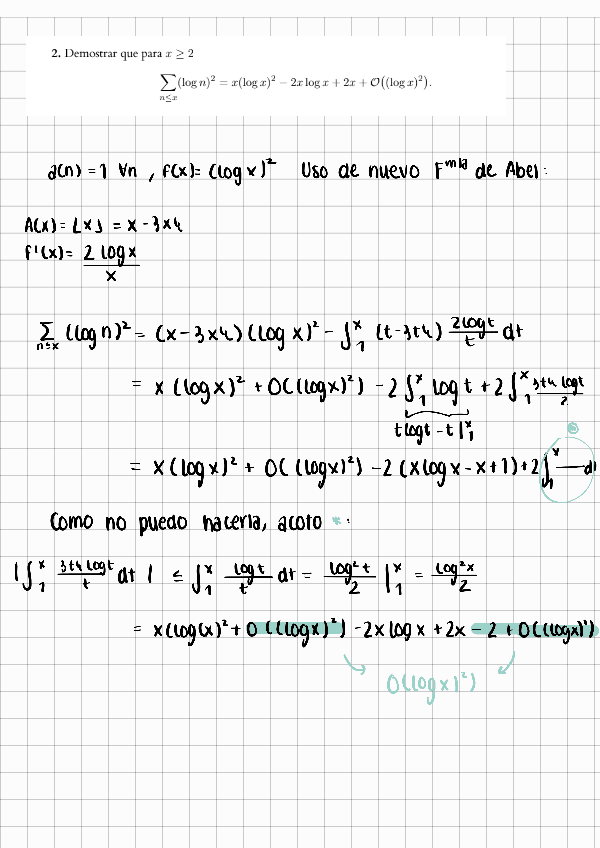 2. Demostrar que para x ≥ 2
∑_{n≤x} (log n)² = x(log x)² − 2x log x + 2x + O((log x)²).
a(n) = 1 ∀n , f(x) = (log x)² Uso de nuevo Fmla de Abel:
A(x) = ⌊x⌋ = x - 3x4
f'(x) = 2 log x / x
∑_{n≤x} (log n)² = (x - 3x4)(log x)² - ∫_1^x (t - 3t4) 2 log t / t dt
= x (log x)² + O((log x)²) - 2 ∫_1^x log t + 2 ∫_1^x 3t4 log t / 2
t log t - t |_1^x
= x (log x)² + O((log x)²) - 2 (x log x - x + 1) + 2 ∫_1^x — dt
Como no puedo hacerla, acoto *:
| ∫_1^x 3t4 log t / t dt | ≤ ∫_1^x log t / t dt = log² t / 2 |_1^x = log² x / 2
= x (log(x)² + O((log x)²) - 2x log x + 2x - 2 + O((log x)²)
O(log x)²)